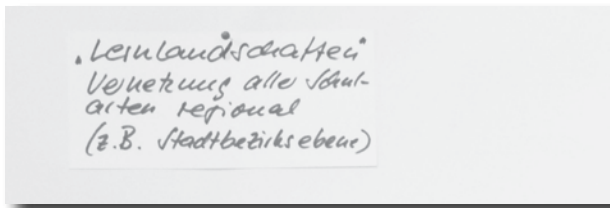 "Lernlandschaften"
Vernetzung aller Schul-
arten regional
(z.B. Stadtbezirksebene)